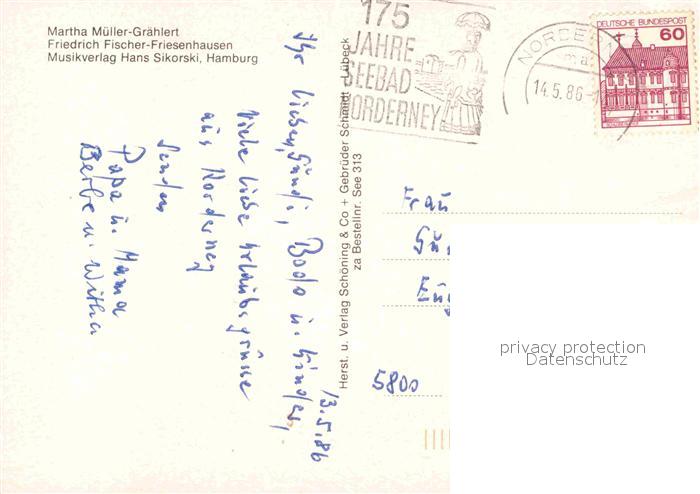 Martha Müller-Grählert
Friedrich Fischer-Friesenhausen
Musikverlag Hans Sikorski, Hamburg
175
JAHRE
SEEBAD
NORDERNEY
NORDERN
14.5.86
DEUTSCHE BUNDESPOST
60
13.5.86
Ihr Lieben, Gündi, Bodo u. Kinder,
Viele liebe Urlaubsgrüsse
aus Norderney
senden
Papa u. Mama
Berbe u.
Herst. u. Verlag Schöning & Co + Gebrüder Schmidt, Lübeck
za Bestellnr. See 313
Frau
5800
privacy protection
Datenschutz